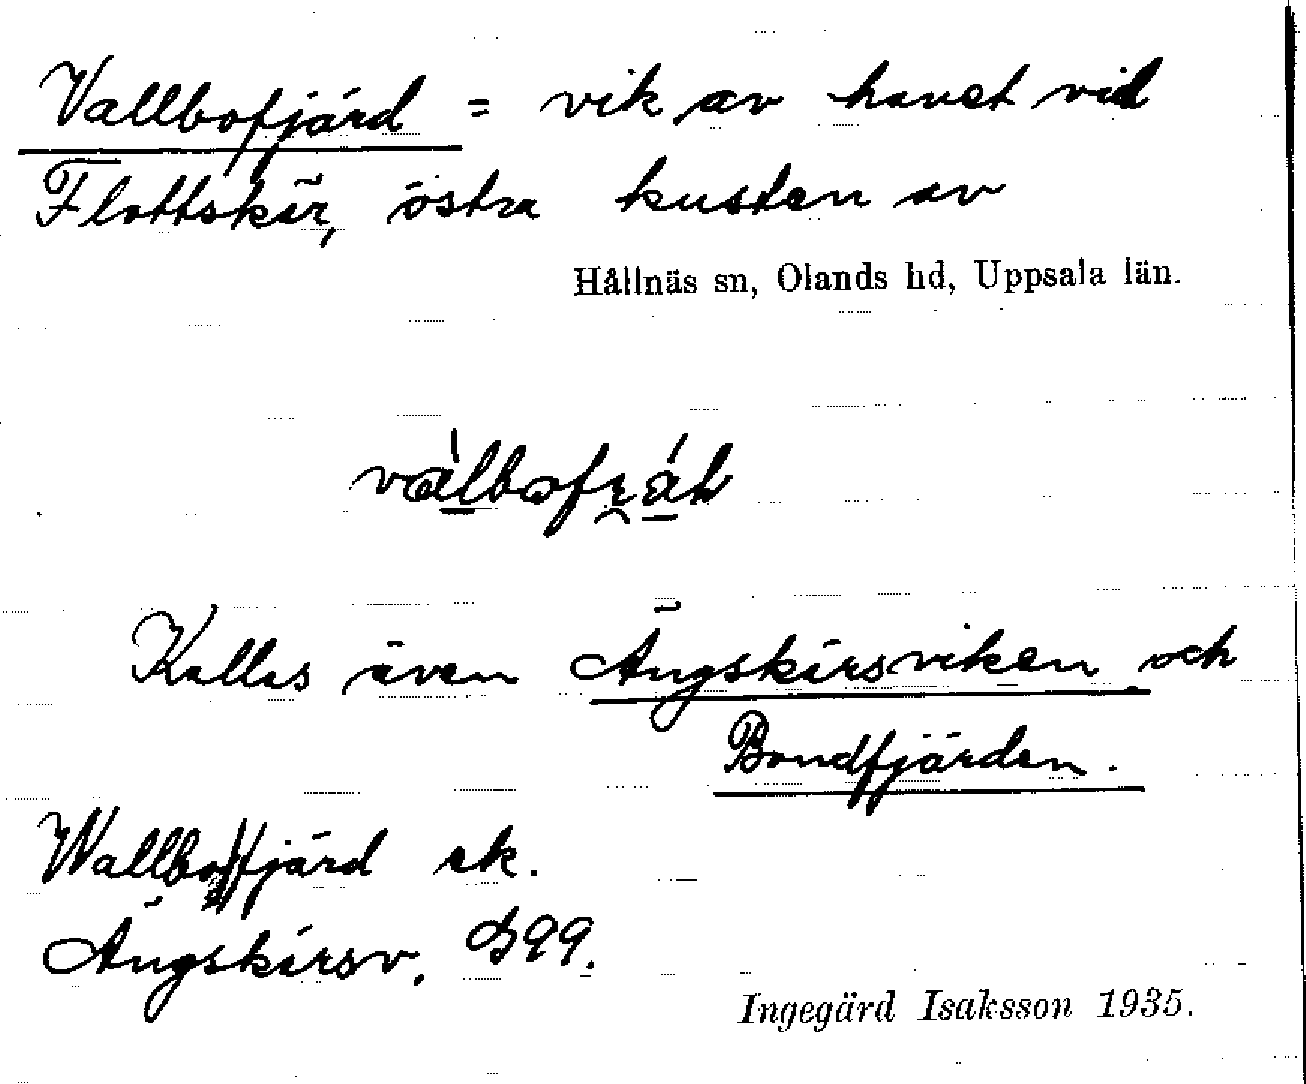 Vallbofjärd = vik av havet vid
Flottskär, östra kusten av
Hållnäs sn, Olands hd, Uppsala län.
Kallas även Ängskärsviken och
Bondfjärden.
Wallbofjärd ek.
Ängskärsv. G99.
Ingegärd Isaksson 1935.